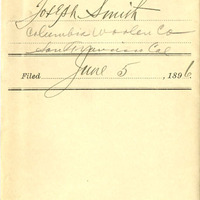 Joseph Smith
Columbia Woolen Co
San Francisco Cal
Filed June 5, 1896.